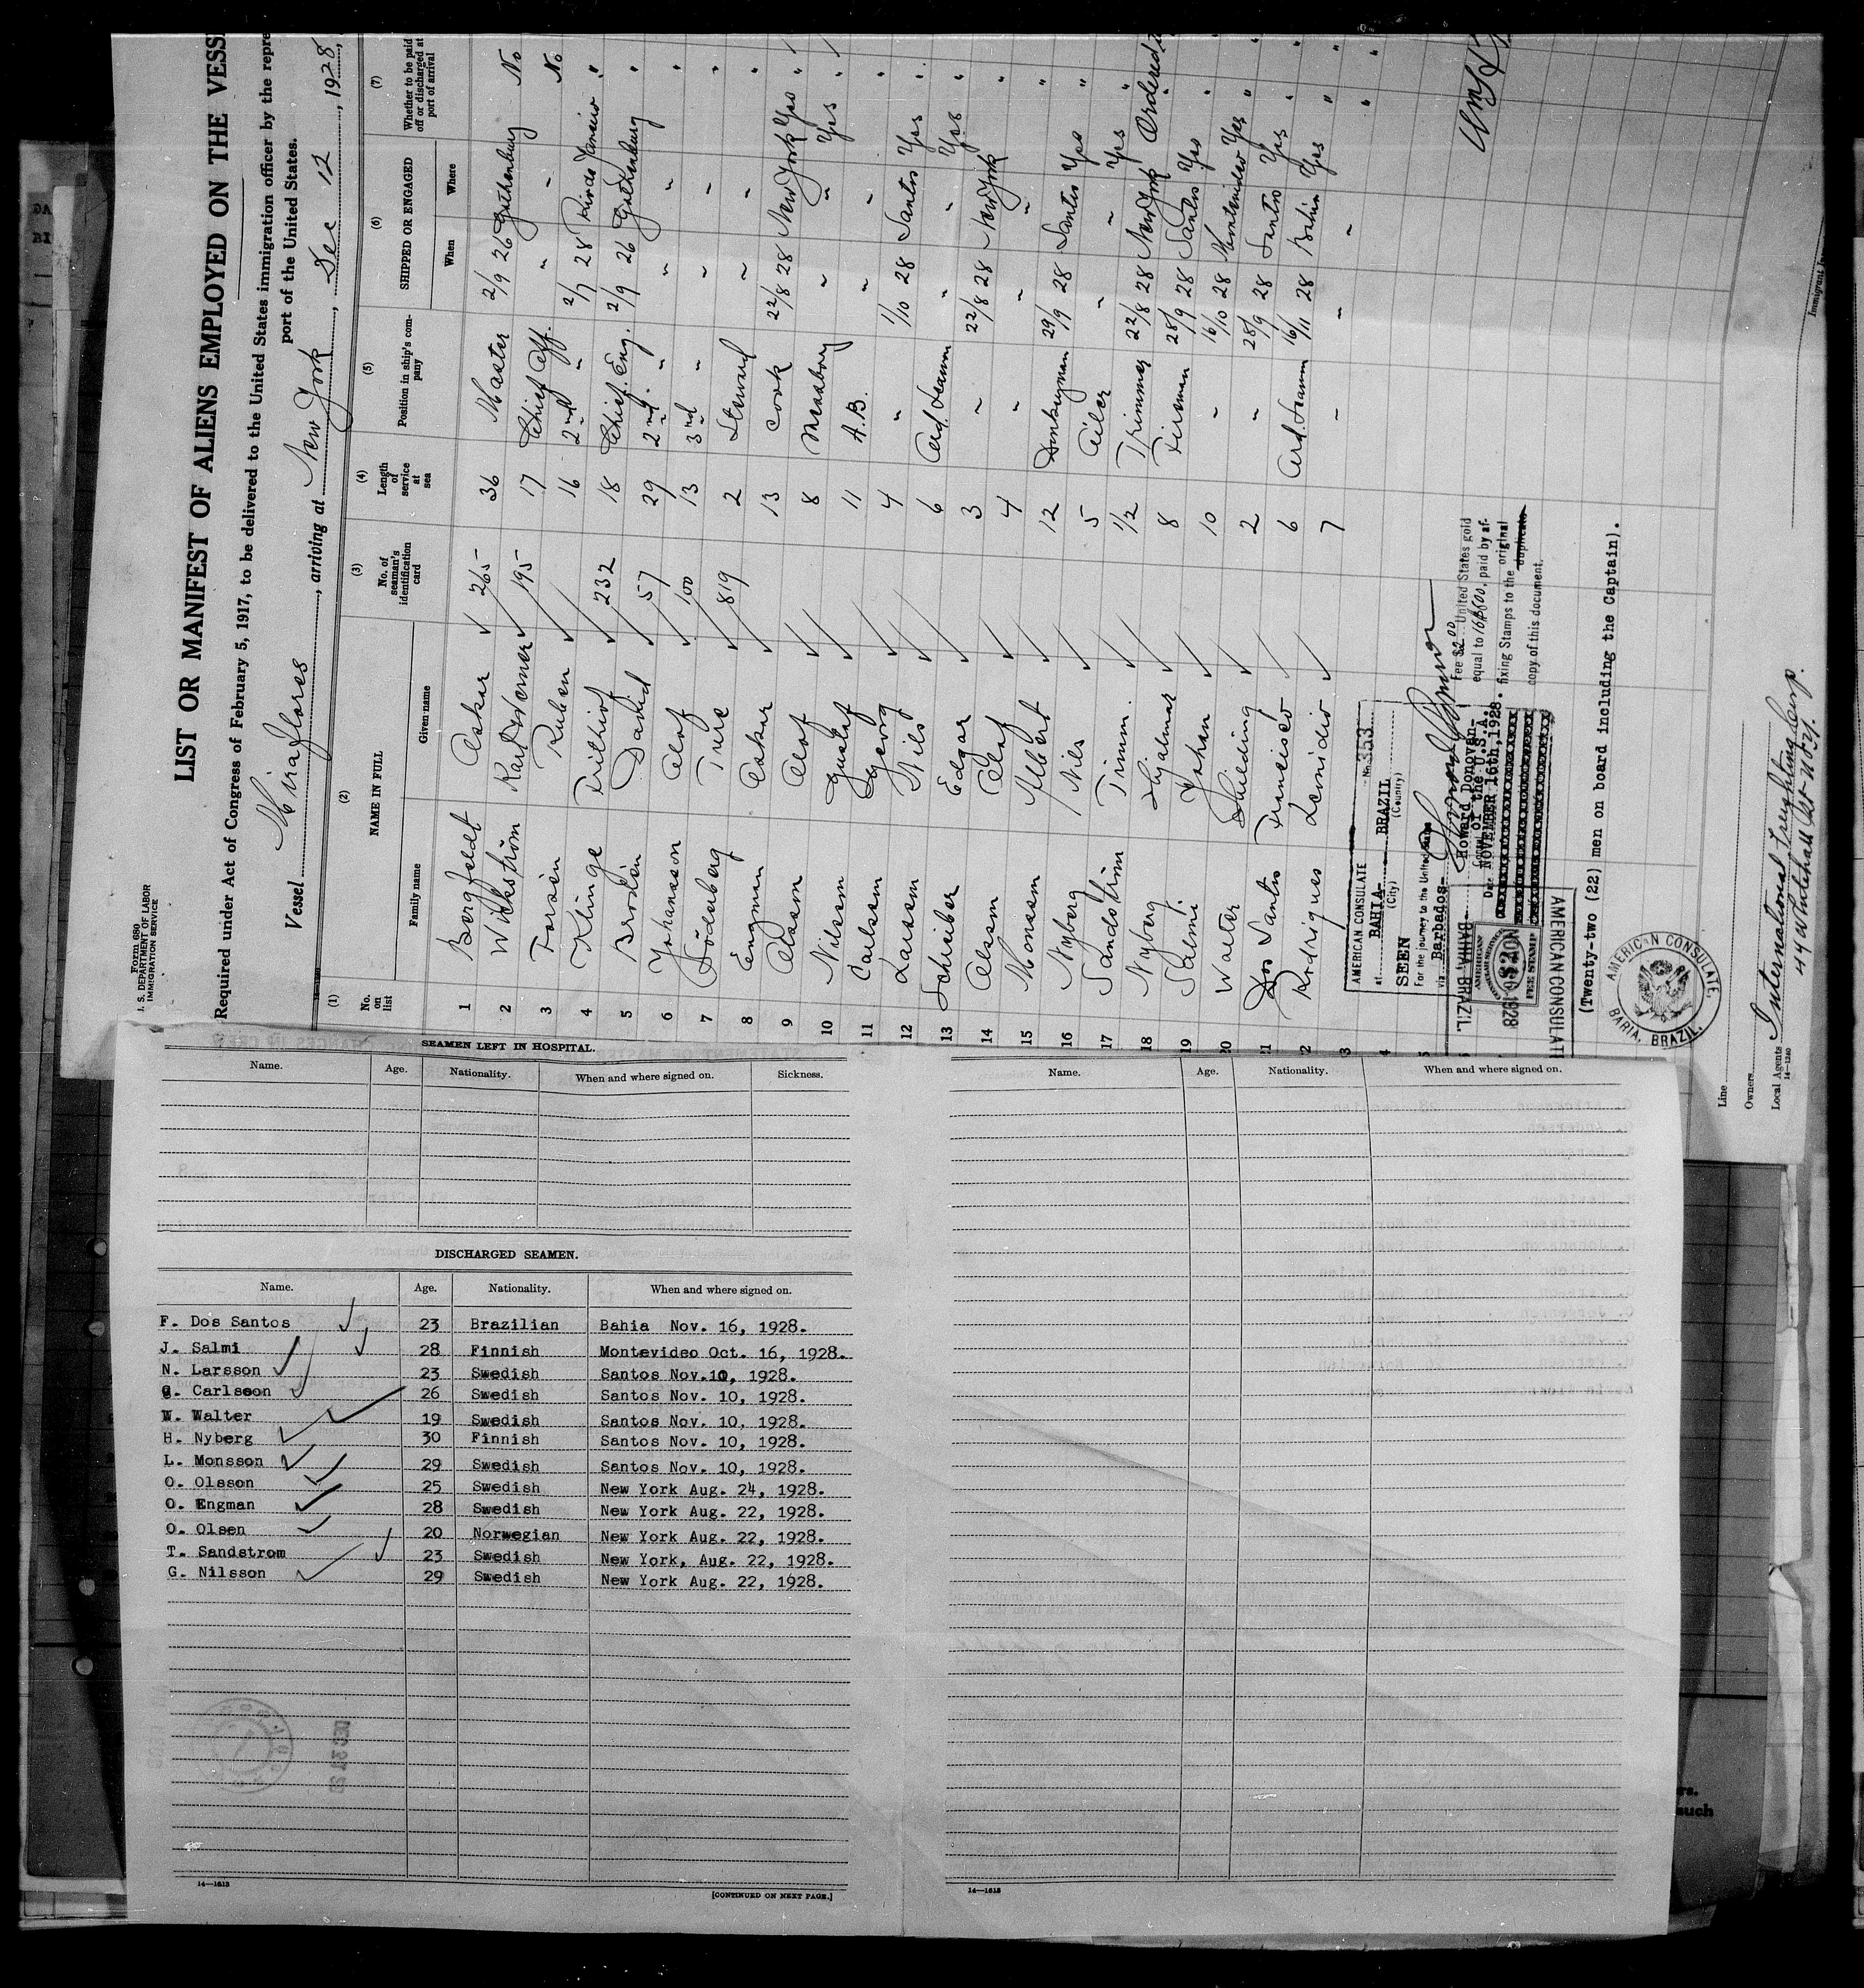 Form 680
U. S. DEPARTMENT OF LABOR
IMMIGRATION SERVICE
LIST OR MANIFEST OF ALIENS EMPLOYED ON THE VESS
Required under Act of Congress of February 5, 1917, to be delivered to the United States immigration officer by the repre
port of the United States.
Vessel Miraflores, arriving at New York, Dec 12, 1928,
(1) (2) (3) (4) (5) (6) (7)
No. on list NAME IN FULL No. of seaman's identification card Length of service at sea Position in ship's company SHIPPED OR ENGAGED Whether to be paid off or discharged at port of arrival
Family name Given name When Where
1 Bergfeldt Oskar 265 36 Master 2/9 26 Gothenburg No
2 Wickström Karl Werner 195 17 Chief Off. " " No
3 Forsén Ruben 16 2nd " 2/7 28 Rio de Janeiro "
4 Klinge Frithiof 232 18 Chief. Eng. 2/9 26 Gothenburg "
5 Brodén David 57 29 2nd. " " " "
6 Johansson Olof 100 13 3rd " " " "
7 Söderberg Ture 819 2 Steward " " "
8 Engman Oskar 13 Cook 22/8 28 New York Yes "
9 Olsson Olof 8 Messboy " " Yes "
10 Nilsson Gustof 11 A.B. " " "
11 Carlsson Georg 4 " 1/10 28 Santos Yes "
12 Larsson Nils 6 Ord. Seaman " " Yes "
13 Schreiber Edgar 3 " 22/8 28 New York "
14 Olsson Olof 4 " " " "
15 Monsson Albert 12 Donkeyman 29/9 28 Santos Yes "
16 Nyberg Nils 5 Oiler " " Yes "
17 Sandström Trimm. 1/2 Trimmer 22/8 28 New York Ordered "
18 Nyberg Hjalmar 8 Fireman 28/9 28 Santos Yes "
19 Salmi Johan 10 " 16/10 28 Montevideo Yes "
20 Walter Shilding 2 " 28/9 28 Santos Yes "
21 Dos Santos Francisco 6 Ord. Seaman 16/11 28 Bahia Yes "
22 Rodriques Leonidio 7 " " "
AMERICAN CONSULATE No. 353
at BAHIA BRAZIL
(City) (Country)
SEEN
For the journey to the United States
via Barbados-
Howard Donovan-
Consul of the U.S.A.
Date NOVEMBER 16th, 1928.
BAHIA, BRAZIL.
Fee $2.00 United States gold
equal to paid by af-
fixing Stamps to the original
duplicate
copy of this document.
AMERICAN CONSULAR SERVICE
$2
FEE STAMP
NOV 16 1928
AMERICAN CONSULATE
(Twenty-two (22) men on board including the Captain).
AMERICAN CONSULATE,
BAHIA, BRAZIL.
Line
Owners
Local Agents International Freighting Corp.
44 Whitehall St
14—1240
Immigrant In
SEAMEN LEFT IN HOSPITAL.
Name. Age. Nationality. When and where signed on. Sickness.
DISCHARGED SEAMEN.
Name. Age. Nationality. When and where signed on.
F. Dos Santos 23 Brazilian Bahia Nov. 16, 1928.
J. Salmi 28 Finnish Montevideo Oct. 16, 1928.
N. Larsson 23 Swedish Santos Nov.10, 1928.
G. Carlsson 26 Swedish Santos Nov. 10, 1928.
W. Walter 19 Swedish Santos Nov. 10, 1928.
H. Nyberg 30 Finnish Santos Nov. 10, 1928.
L. Monsson 29 Swedish Santos Nov. 10, 1928.
O. Olsson 25 Swedish New York Aug. 24, 1928.
O. Engman 28 Swedish New York Aug. 22, 1928.
O. Olsen 20 Norwegian New York Aug. 22, 1928.
T. Sandstrom 23 Swedish New York, Aug. 22, 1928.
G. Nilsson 29 Swedish New York Aug. 22, 1928.
14—1613
[CONTINUED ON NEXT PAGE.]
Name. Age. Nationality. When and where signed on.
14—1613
rs.
such